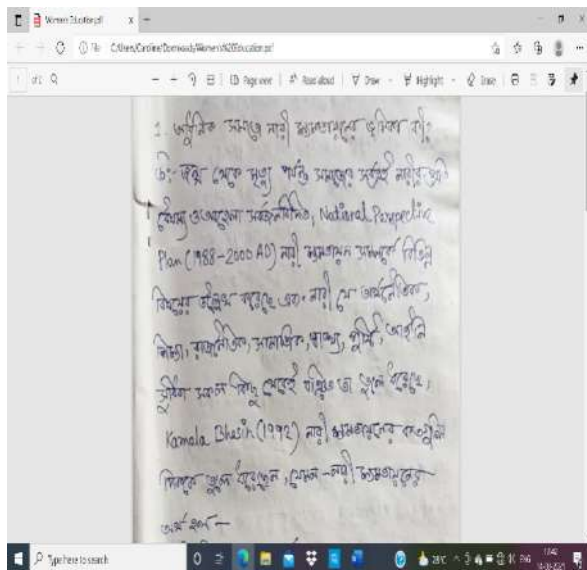 Women Education.pdf
C:/Users/Caroline/Downloads/Women%20Education.pdf
1 of 2
Page view | Read aloud | Draw Highlight Erase
1. আধুনিক সমাজে নারী ক্ষমতায়নের ভূমিকা কী?
উ: জন্ম থেকে মৃত্যু পর্যন্ত সমাজের সর্বত্রই নারীর প্রতি
বৈষম্য ও অবহেলা সর্বজনবিদিত, National Perspective
Plan (1988-2000 AD) নারী ক্ষমতায়ন সম্পর্কে বিভিন্ন
বিষয়ের উল্লেখ করেছে এবং নারী যে অর্থনৈতিক,
শিক্ষা, রাজনৈতিক, সামাজিক, স্বাস্থ্য, পুষ্টি, আইনি
সুবিধা সকল কিছু থেকেই বঞ্চিত তা তুলে ধরেছে,
Kamala Bhasin (1992) নারী ক্ষমতায়নের কতগুলি
দিককে তুলে ধরেছেন, যেমন - নারী ক্ষমতায়নের
অর্থ হল -
Type here to search
28°C ENG 11:42